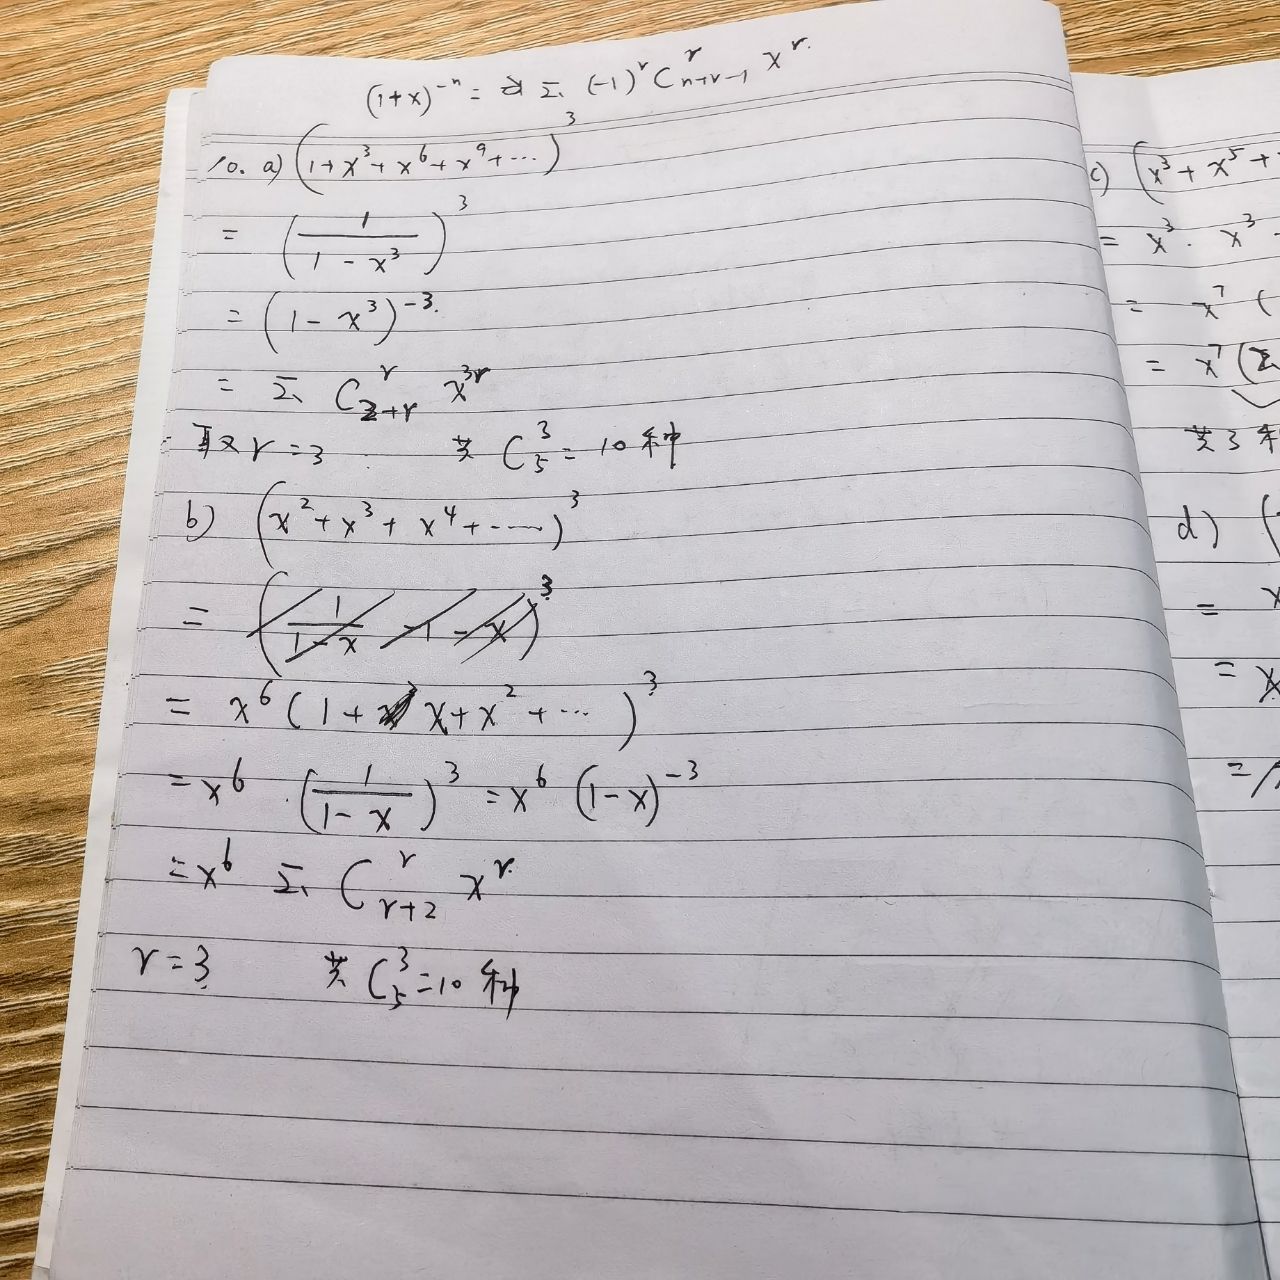 (1+x)^{-n} = Σ (-1)^r C_{n+r-1}^r x^r.
10. a) (1+x^3+x^6+x^9+…)^3
= (1/(1-x^3))^3
= (1-x^3)^{-3}.
= Σ C_{2+r}^r x^{3r}
取 r=3 共 C_5^3 = 10 种
b) (x^2+x^3+x^4+……)^3
= x^6 (1+x+x^2+…)^3
= x^6 · (1/(1-x))^3 = x^6 (1-x)^{-3}
= x^6 Σ C_{r+2}^r x^r.
r=3 共 C_5^3 = 10 种
c) (x^3+x^5+
= x^3 · x^3
= x^7 (
= x^7 (Σ
共 3 种
d) (
= x
= x
=